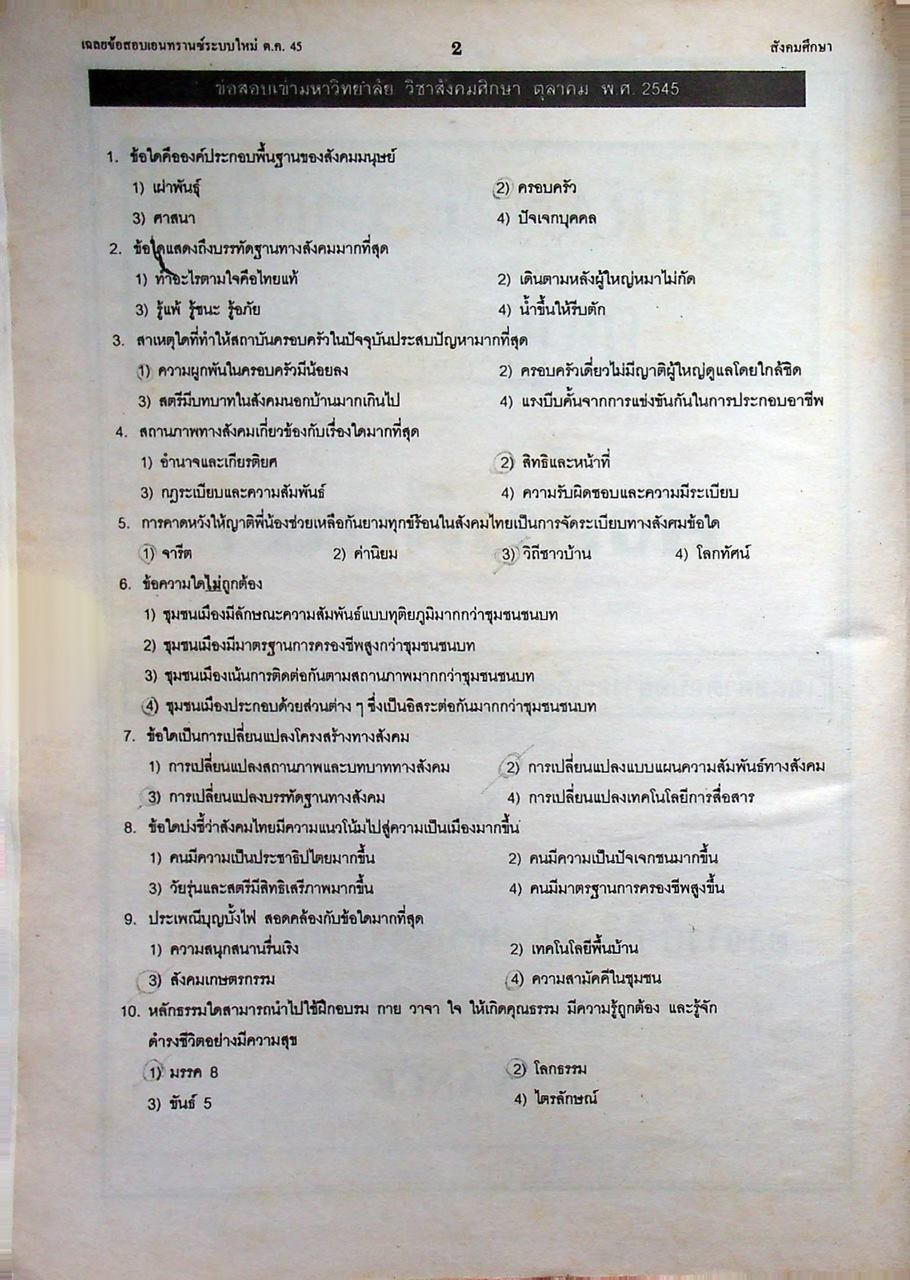 เฉลยข้อสอบเอนทรานซ์ระบบใหม่ ต.ค. 45 2 สังคมศึกษา
ข้อสอบเข้ามหาวิทยาลัย วิชาสังคมศึกษา ตุลาคม พ.ศ. 2545
1. ข้อใดคือองค์ประกอบพื้นฐานของสังคมมนุษย์
1) เผ่าพันธุ์ 2) ครอบครัว
3) ศาสนา 4) ปัจเจกบุคคล
2. ข้อใดแสดงถึงบรรทัดฐานทางสังคมมากที่สุด
1) ทำอะไรตามใจคือไทยแท้ 2) เดินตามหลังผู้ใหญ่หมาไม่กัด
3) รู้แพ้ รู้ชนะ รู้อภัย 4) น้ำขึ้นให้รีบตัก
3. สาเหตุใดที่ทำให้สถาบันครอบครัวในปัจจุบันประสบปัญหามากที่สุด
1) ความผูกพันในครอบครัวมีน้อยลง 2) ครอบครัวเดี่ยวไม่มีญาติผู้ใหญ่ดูแลโดยใกล้ชิด
3) สตรีมีบทบาทในสังคมนอกบ้านมากเกินไป 4) แรงบีบคั้นจากการแข่งขันกันในการประกอบอาชีพ
4. สถานภาพทางสังคมเกี่ยวข้องกับเรื่องใดมากที่สุด
1) อำนาจและเกียรติยศ 2) สิทธิและหน้าที่
3) กฎระเบียบและความสัมพันธ์ 4) ความรับผิดชอบและความมีระเบียบ
5. การคาดหวังให้ญาติพี่น้องช่วยเหลือกันยามทุกข์ร้อนในสังคมไทยเป็นการจัดระเบียบทางสังคมข้อใด
1) จารีต 2) ค่านิยม 3) วิถีชาวบ้าน 4) โลกทัศน์
6. ข้อความใดไม่ถูกต้อง
1) ชุมชนเมืองมีลักษณะความสัมพันธ์แบบทุติยภูมิมากกว่าชุมชนชนบท
2) ชุมชนเมืองมีมาตรฐานการครองชีพสูงกว่าชุมชนชนบท
3) ชุมชนเมืองเน้นการติดต่อกันตามสถานภาพมากกว่าชุมชนชนบท
4) ชุมชนเมืองประกอบด้วยส่วนต่าง ๆ ซึ่งเป็นอิสระต่อกันมากกว่าชุมชนชนบท
7. ข้อใดเป็นการเปลี่ยนแปลงโครงสร้างทางสังคม
1) การเปลี่ยนแปลงสถานภาพและบทบาททางสังคม 2) การเปลี่ยนแปลงแบบแผนความสัมพันธ์ทางสังคม
3) การเปลี่ยนแปลงบรรทัดฐานทางสังคม 4) การเปลี่ยนแปลงเทคโนโลยีการสื่อสาร
8. ข้อใดบ่งชี้ว่าสังคมไทยมีความแนวโน้มไปสู่ความเป็นเมืองมากขึ้น
1) คนมีความเป็นประชาธิปไตยมากขึ้น 2) คนมีความเป็นปัจเจกชนมากขึ้น
3) วัยรุ่นและสตรีมีสิทธิเสรีภาพมากขึ้น 4) คนมีมาตรฐานการครองชีพสูงขึ้น
9. ประเพณีบุญบั้งไฟ สอดคล้องกับข้อใดมากที่สุด
1) ความสนุกสนานรื่นเริง 2) เทคโนโลยีพื้นบ้าน
3) สังคมเกษตรกรรม 4) ความสามัคคีในชุมชน
10. หลักธรรมใดสามารถนำไปใช้ฝึกอบรม กาย วาจา ใจ ให้เกิดคุณธรรม มีความรู้ถูกต้อง และรู้จัก
ดำรงชีวิตอย่างมีความสุข
1) มรรค 8 2) โลกธรรม
3) ขันธ์ 5 4) ไตรลักษณ์